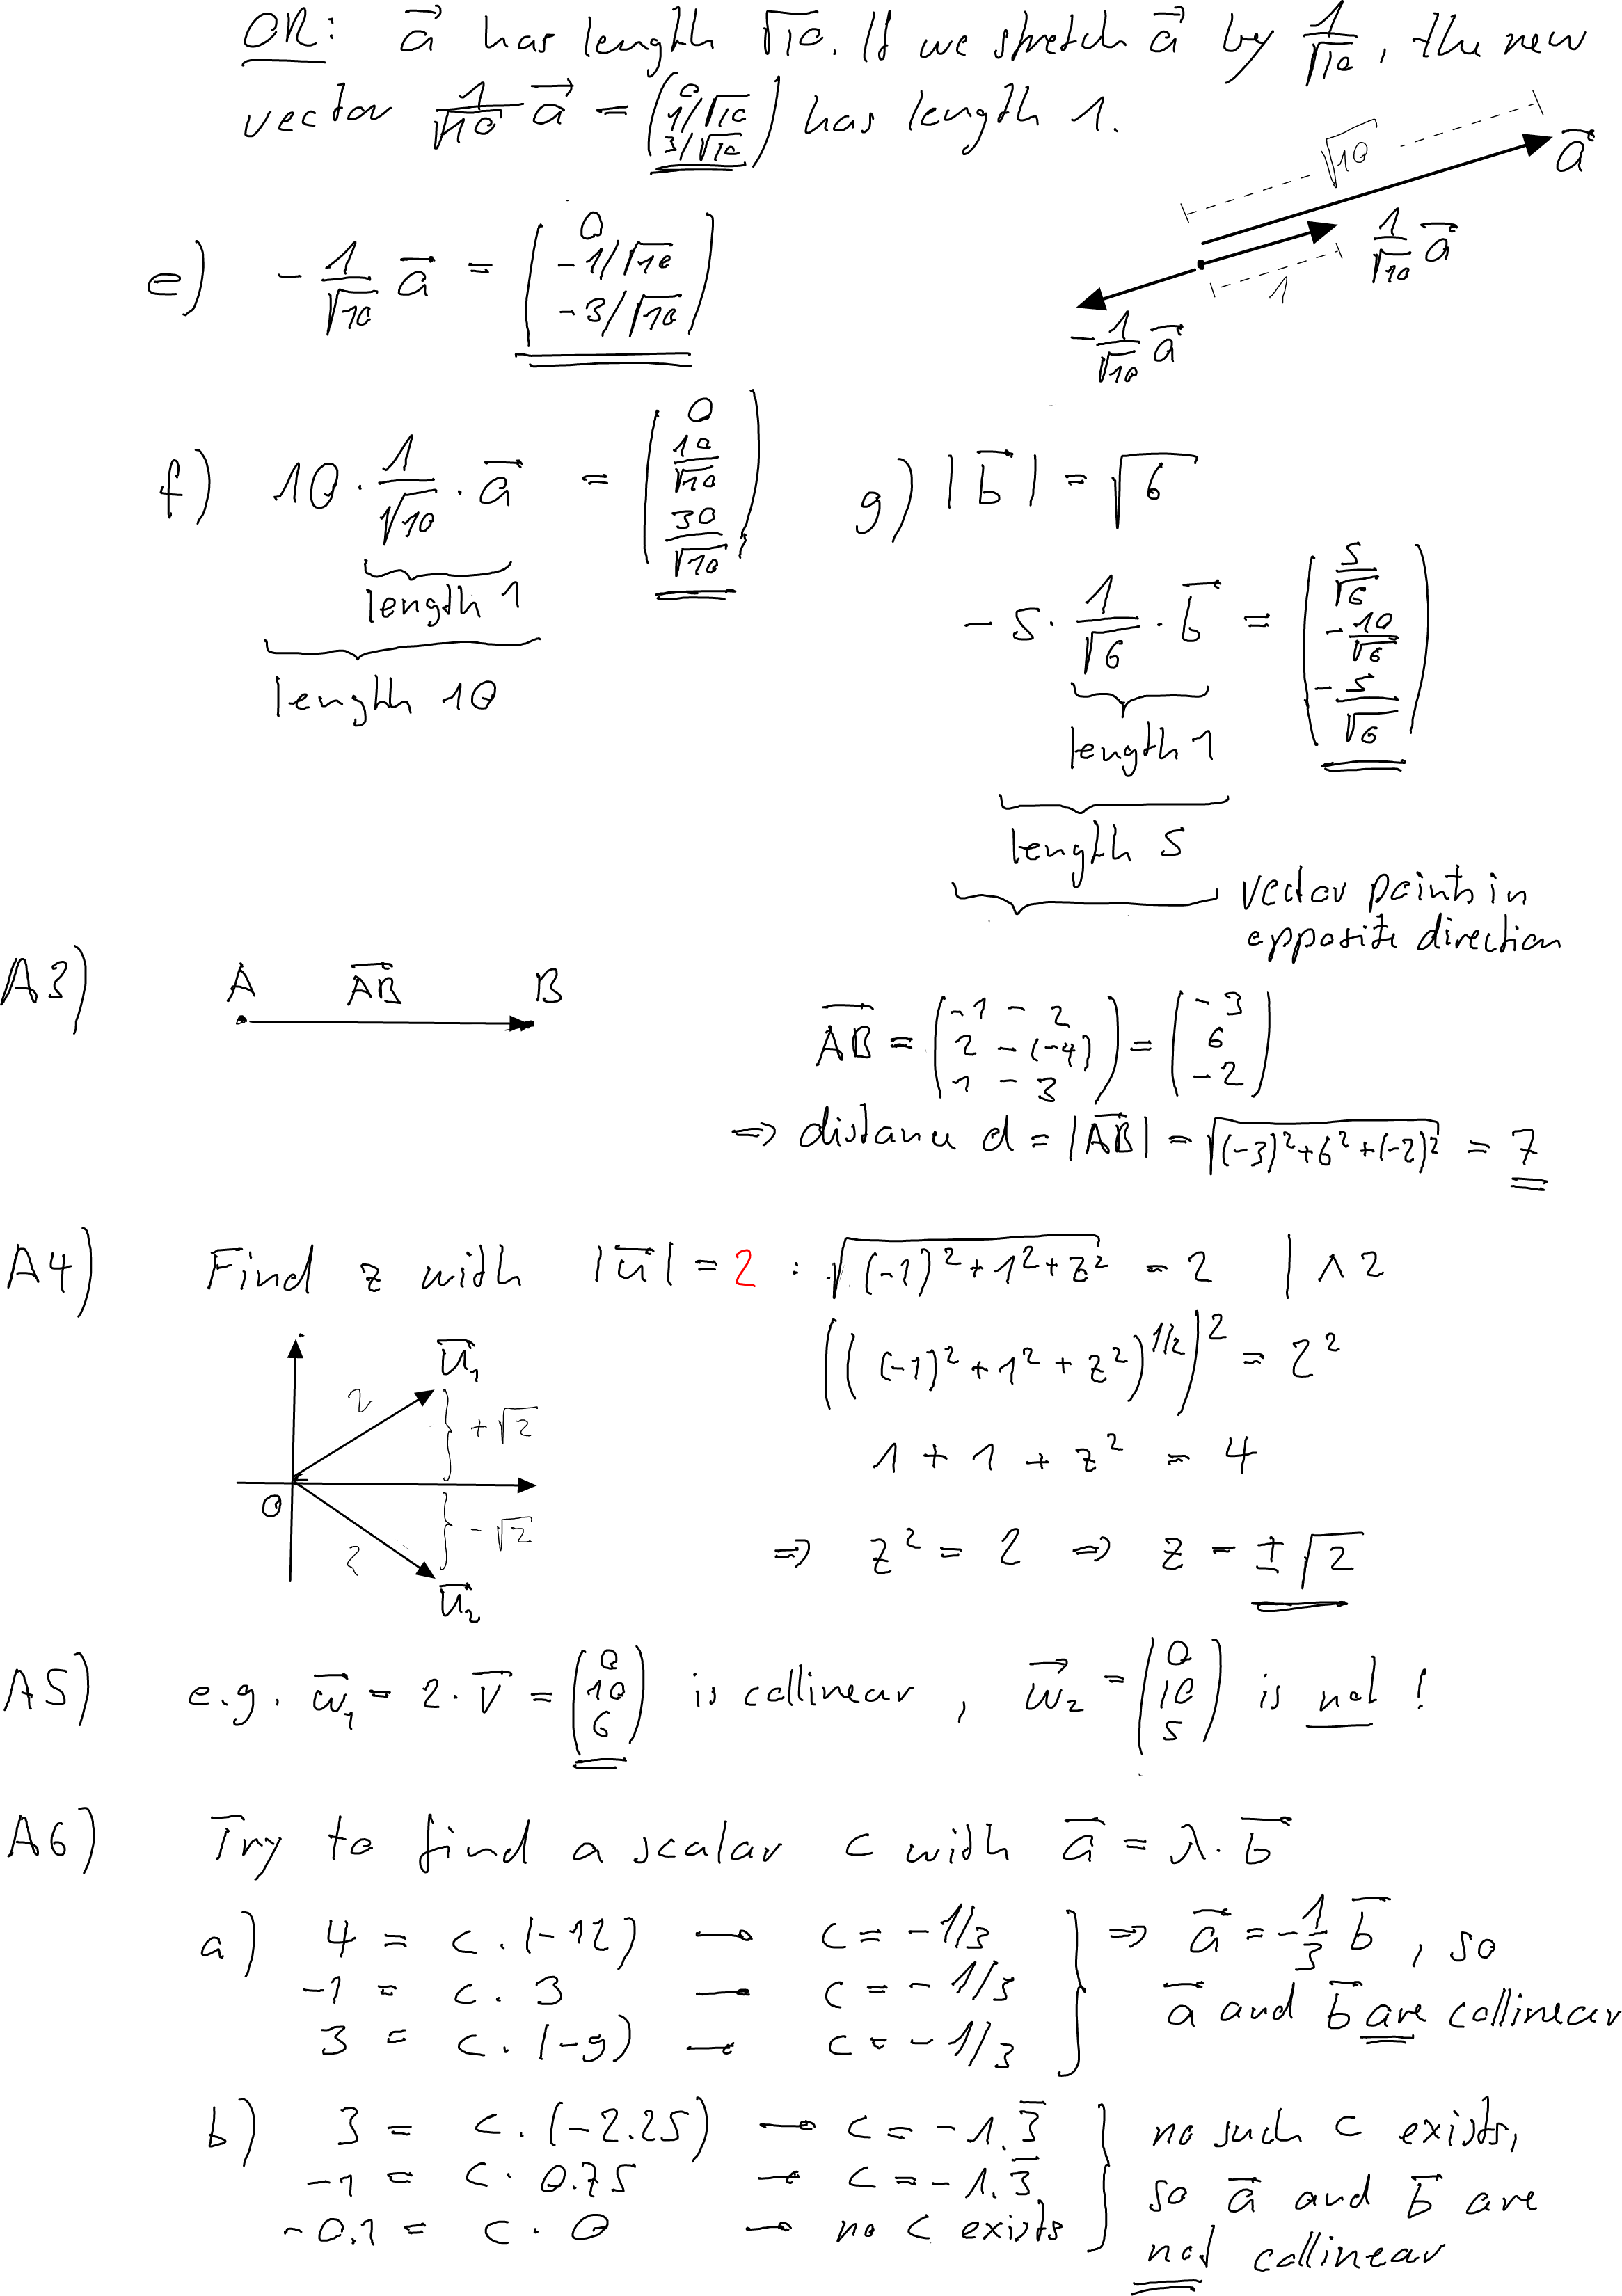 OR: a⃗ has length √10. If we stretch a⃗ by 1/√10, the new
vector 1/√10 a⃗ = (0, 1/√10, 3/√10) has length 1.
√10
a⃗
1/√10 a⃗
1
-1/√10 a⃗
e) -1/√10 a⃗ = (0, -1/√10, -3/√10)
f) 10 · 1/√10 · a⃗ = (0, 10/√10, 30/√10)
length 1
length 10
g) |b⃗| = √6
-5 · 1/√6 · b⃗ = (5/√6, -10/√6, -5/√6)
length 1
length 5
vector points in
opposite direction
A3) A AB⃗ B
AB⃗ = (-1 - 2, 2 - (-4), 1 - 3) = (-3, 6, -2)
⇒ distance d = |AB⃗| = √((-3)²+6²+(-2)²) = 7
A4) Find z with |u⃗| = 2 : √((-1)²+1²+z²) = 2 | ∧2
(((-1)²+1²+z²)^1/2)² = 2²
1 + 1 + z² = 4
⇒ z² = 2 ⇒ z = ±√2
u⃗₁
2
+√2
0
-√2
2
u⃗₂
A5) e.g. w⃗₁ = 2 · v⃗ = (0, 10, 6) is collinear, w⃗₂ = (0, 10, 5) is not !
A6) Try to find a scalar c with a⃗ = λ · b⃗
a) 4 = c · (-12) → c = -1/3
-1 = c · 3 → c = -1/3
3 = c · (-9) → c = -1/3
⇒ a⃗ = -1/3 b⃗, so
a⃗ and b⃗ are collinear
b) 3 = c · (-2.25) → c = -1.3̅
-1 = c · 0.75 → c = -1.3̅
-0.1 = c · 0 → no c exists
no such c exists,
so a⃗ and b⃗ are
not collinear